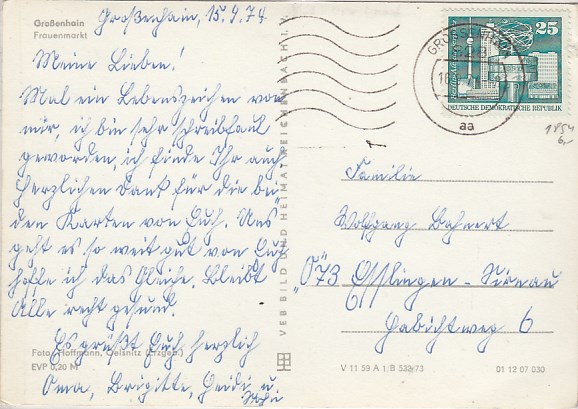 Großenhain
Frauenmarkt
Großenhain, 15.9.74
Meine Lieben!
Mal ein Lebenszeichen von
mir, ich bin sehr schreibfaul
geworden, ich finde Ihr auch
Herzlichen Dank für die bei-
den Karten von Euch. Uns
geht es so weit gut von Euch
hoffe ich das Gleiche. Bleibt
Alle recht gesund.
Es grüßt Euch herzlich
Oma, Brigitte, Heidi u.
Foto: Hoffmann, Oelsnitz (Erzgeb.)
EVP 0,20 M
VEB BILD UND HEIMAT REICHENBACH I. V.
25
DEUTSCHE DEMOKRATISCHE REPUBLIK
aa
1854
6,-
Familie
Wolfgang Bahnert
73 Esslingen-Sirnau
Habichtweg 6
V 11 59 A 1/B 532/73
01 12 07 030